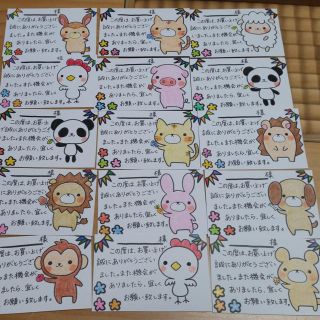 様
この度は、お買い上げ
誠にありがとうござい
ました。また機会が
ありましたら、宜しく
お願い致します。
様
この度は、お買い上げ
誠にありがとうござい
ました。また機会が
ありましたら、宜しく
お願い致します。
様
この度は、お買い上げ
誠にありがとうござい
ました。また機会が
ありましたら、宜しく
お願い致します。
様
この度は、お買い上げ
誠にありがとうござい
ました。また機会が
ありましたら、宜しく
お願い致します。
様
この度は、お買い上げ
誠にありがとうござい
ました。また機会が
ありましたら、宜しく
お願い致します。
様
この度は、お買い上げ
誠にありがとうござい
ました。また機会が
ありましたら、宜しく
お願い致します。
様
この度は、お買い上げ
誠にありがとうござい
ました。また機会が
ありましたら、宜しく
お願い致します。
様
この度は、お買い上げ
誠にありがとうござい
ました。また機会が
ありましたら、宜しく
お願い致します。
様
この度は、お買い上げ
誠にありがとうござい
ました。また機会が
ありましたら、宜しく
お願い致します。
様
この度は、お買い上げ
誠にありがとうござい
ました。また機会が
ありましたら、宜しく
お願い致します。
様
この度は、お買い上げ
誠にありがとうござい
ました。また機会が
ありましたら、宜しく
お願い致します。
様
この度は、お買い上げ
誠にありがとうござい
ました。また機会が
ありましたら、宜しく
お願い致します。
様
この度は、お買い上げ
誠にありがとうござい
ました。また機会が
ありましたら、宜しく
お願い致します。
様
この度は、お買い上げ
誠にありがとうござい
ました。また機会が
ありましたら、宜しく
お願い致します。
様
この度は、お買い上げ
誠にありがとうござい
ました。また機会が
ありましたら、宜しく
お願い致します。